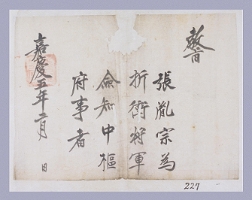 敎旨
張胤宗為
折衝將軍
僉知中樞
府事者
嘉慶五年二月 日
227